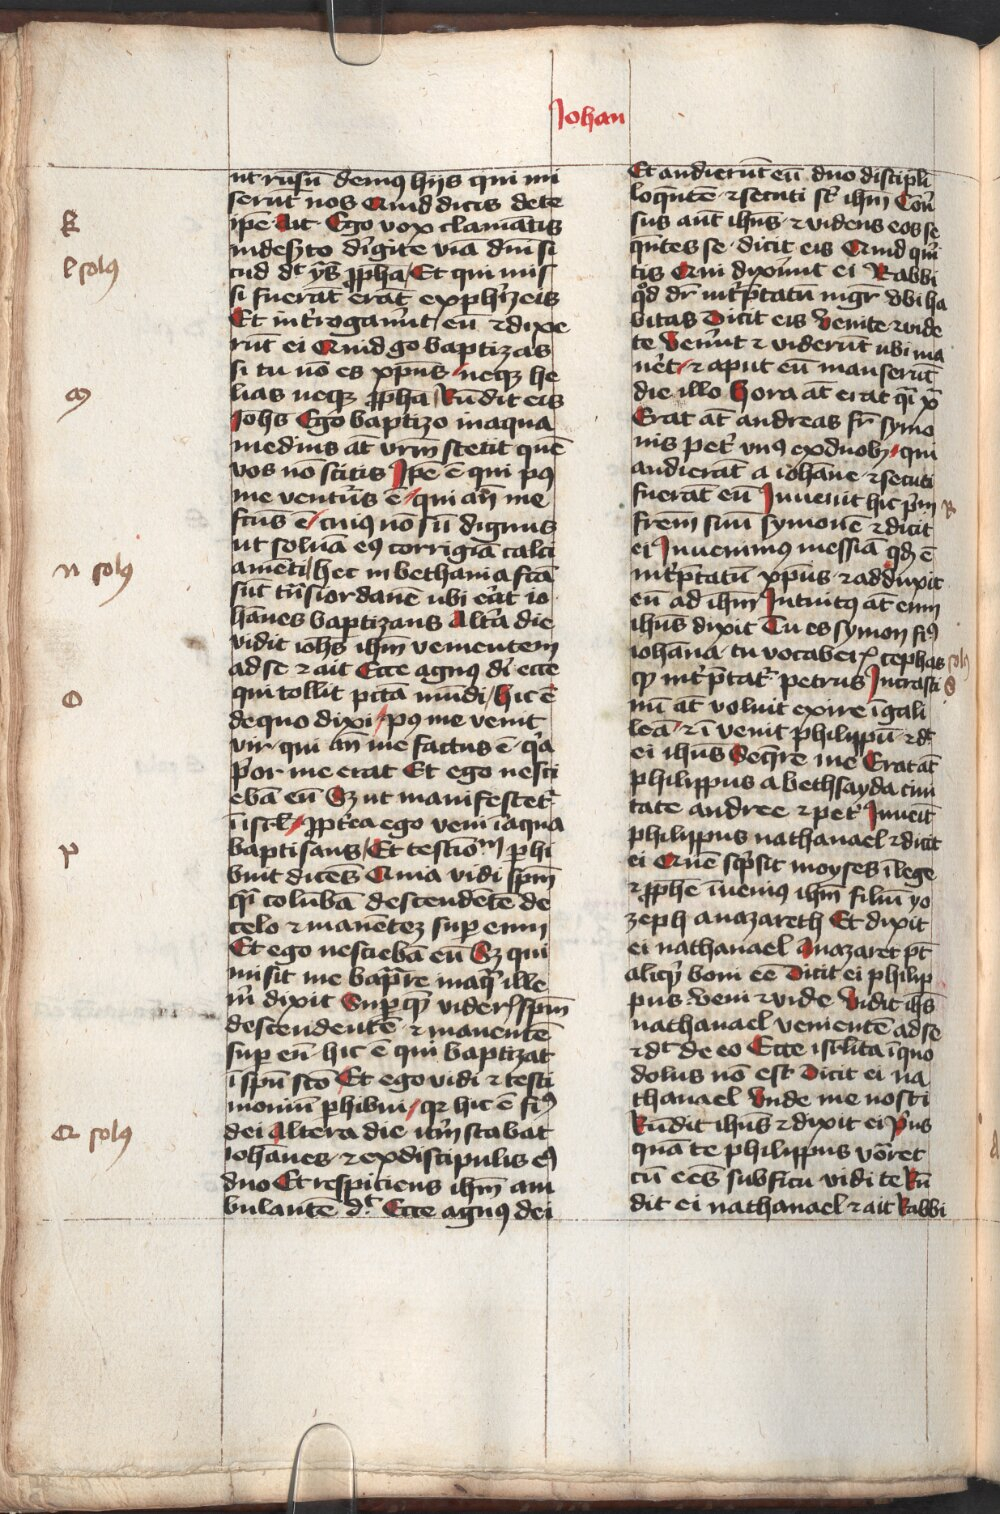 Johan
ut rn̄sū demꝰ hijs qui mi
serūt nos Quid dicis de te
ip̄e Ait Ego vox clamātis
in desẏto dirigite viā dn̄i si
cud dt ys̄ ꝓpha Et qui mis
si fuerāt erāt ex pharizeis
Et int̄rogauer̄ut eū ⁊ dixe
rūt ei Quid go baptizas
si tu nō es xp̄us neqꝫ he
lias neqꝫ ꝓpha Rn̄dit eis
Johs Ego baptizo in aqua
medius āt vrm̄ stetit quē
vos nō scitis Ip̄e ē qui pꝰ
me ventur̄s ē qui an̄ me
fctus ē cuiꝰ nō sū dignus
ut soluā eꝰ corrigiā calci
amēti hec in bethania fctā
sūt trn̄s iordanē ubi erat io
hānes baptizans Altera die
vidit iohs ihm̄ venientem
ad se ⁊ ait Ecce agnus di ecce
qui tollit pctā mūdi hic ē
de quo dixi pꝰ me venit
vir qui an̄ me factus ē qa
p̄or me erat Et ego nesci
ebā eū Sꝫ ut manifestet̄
ī isrl ꝓpterea ego veni ī aqua
baptisans Et testiom̄ ꝑhi
buit dicēs Quia vidi spm̄
qͣ columbā descendētē de
celo ⁊ manētez suꝑ eum
Et ego nesciebā eū Sꝫ qui
misit me bapͣre in aqͣ ille
m̄ dixit Suꝑ quē viderꝭ spm̄
descendentē ⁊ manentē
suꝑ eū hic ē qui baptizat
ī spū scō Et ego vidi ⁊ testi
moniū ꝑhibui qꝛ hic ē fiꝰ
dei Altera die itm̄ stabat
iohānes ⁊ ex discipulis eꝰ
duo Et respiciens ihm̄ am
bulantē dt Ecce agnꝰ dei
Et audierūt eū duo discipli
loqn̄tē ⁊ secuti st̄ ihm̄ Con̄
sus aūt ihus ⁊ videns eos se
qn̄tes se dicit eis Quid qri
tis Qui dixer̄ut ei Rabbi
qd̄ dr̄ int̄ptatū mgr̄ vbi ha
bitas Dicit eis Venite ⁊ vide
te Vener̄ut ⁊ viderūt ubi ma
net ⁊ aput eū manserūt
die illo Hora āt erat qͣ xͣ
Erat āt andreas fr̄ symo
nis petͥ vnꝰ ex duobꝫ qui
audierāt a iohāne ⁊ secuti
fuerāt eū Inuenit hic pm̄
frēm suū symonē ⁊ dicit
ei Inuenimꝰ messiā qd̄ ē
int̄ptatū xp̄us ⁊ adduxit
eū ad ihm̄ Intuitꝰ āt eum
ihus dixit Tu es symon fiꝰ
iohāna tu vocaberꝭ cephas
qd̄ int̄ptat̄ petrus In crasti
nū āt voluit exire ī gali
leā ⁊ ī venit philippū ⁊ dt
ei ihus Seqre me Erat āt
philippus a bethsayda ciui
tate andree ⁊ petͥ Inuenit
philippus nathanael ⁊ dicit
ei Quē scpsit moyses ī lege
⁊ ꝓphē īuenimꝰ ihm̄ filiū yo
zeph a nazareth Et dixit
ei nathanael A nazaret pt̄
aliqd̄ boni eē Dicit ei philip
pus Veni ⁊ vide Vidit ihs̄
nathanael venientē ad se
⁊ dt de eo Ecce isrlita ī quo
dolus nō est Dicit ei na
thanael Vnde me nosti
Rn̄dit ihus ⁊ dixit ei Pͥus
quā te philippus vocaret
cū eēs sub ficu vidi te Rn̄
dit ei nathanael ⁊ ait Rabbi
K
l solꝰ
m
n solꝰ
O
P
Q solꝰ
R
solꝰ
S